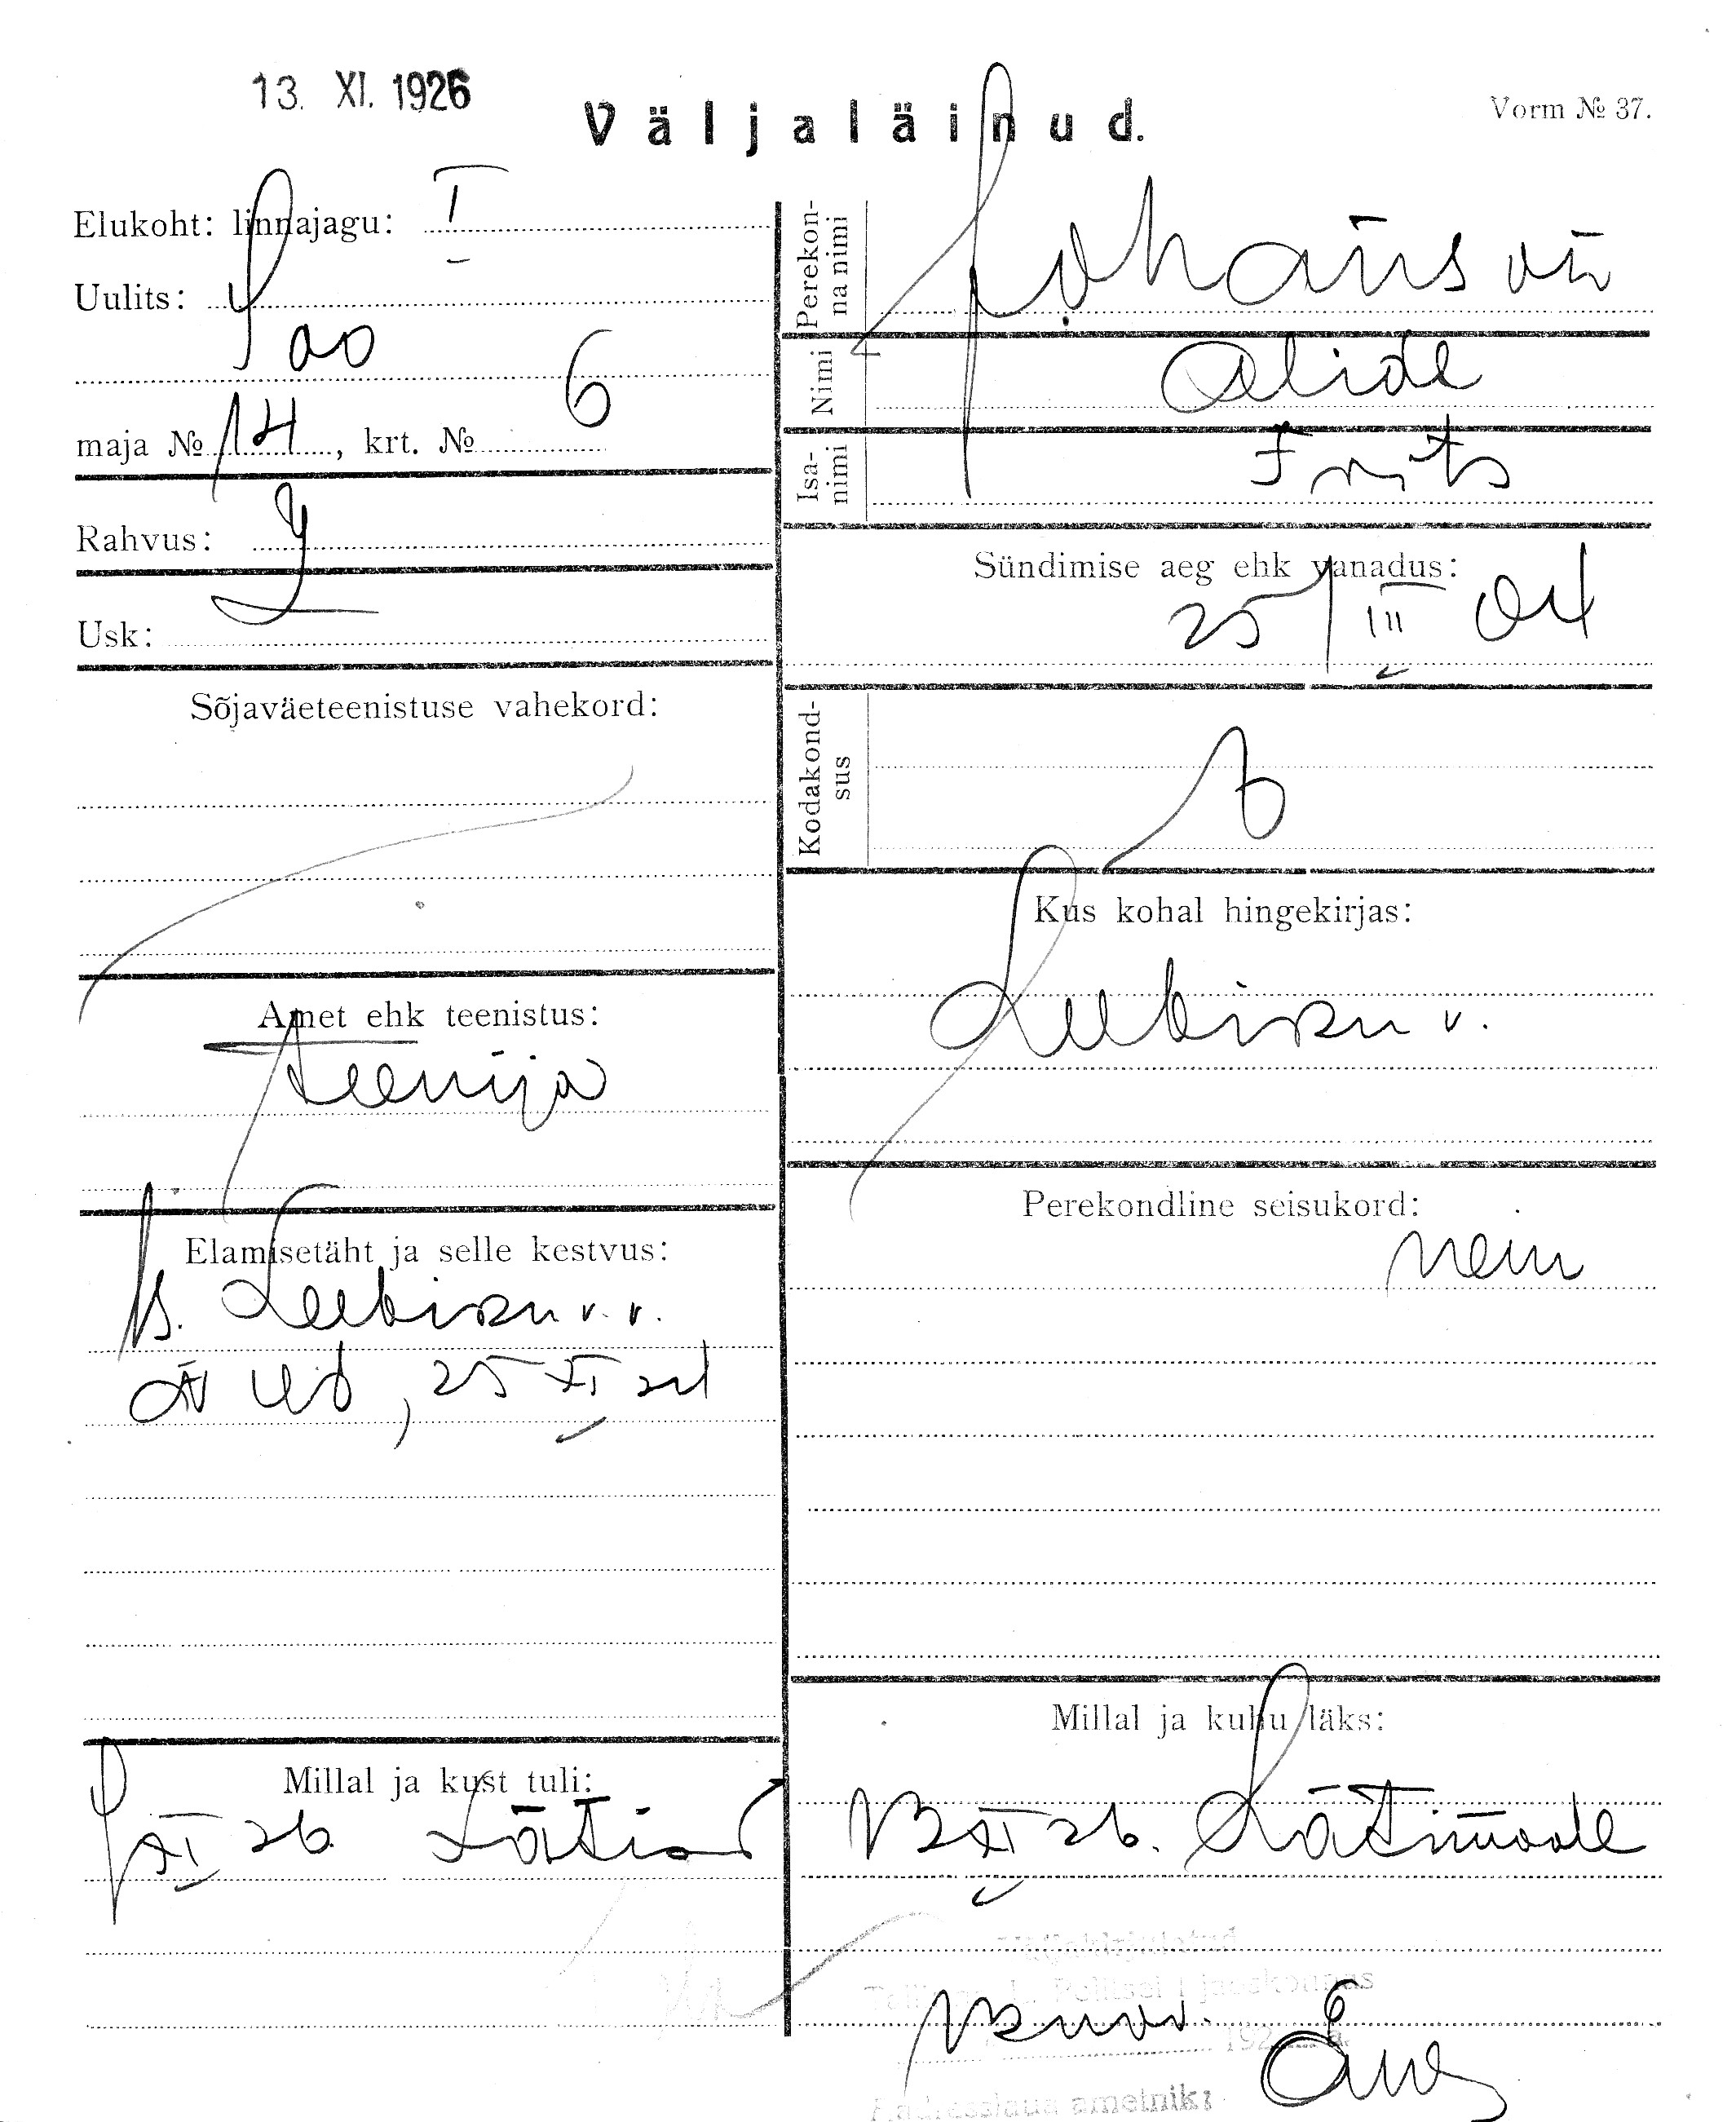 13. XI. 1926
Väljaläinud.
Vorm № 37.
Elukoht: linnajagu: I
Uulits:
Soo
maja № 14, krt. № 6
Rahvus:
Usk:
Sõjaväeteenistuse vahekord:
Amet ehk teenistus:
teenija
Elamisetäht ja selle kestvus:
Leebiku v. v.
, 25 XI 24
Millal ja kust tuli:
XI 26 Lätist
Perekon-
na nimi
Johanson
Nimi
Alide
Isa-
nimi
Frits
Sündimise aeg ehk vanadus:
25/III 04
Kodakond-
sus
Kus kohal hingekirjas:
Leebiku v.
Perekondline seisukord:
Millal ja kuhu läks:
13 XI 26. Lätimaale
Väljakirjutatud
Tallinna L. Politsei I jaoskonnas
13 nov. 1926
Aadresslaua ametnik: